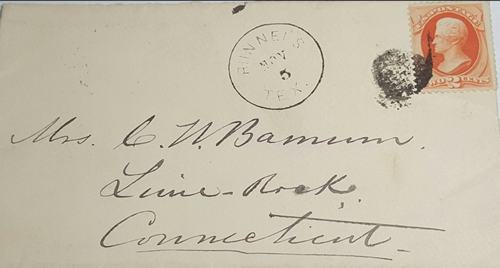 RUNNELS
NOV
5
TEX.
U.S. POSTAGE
TWO CENTS
Mrs. C. W. Barnum.
Lime-Rock
Connecticut